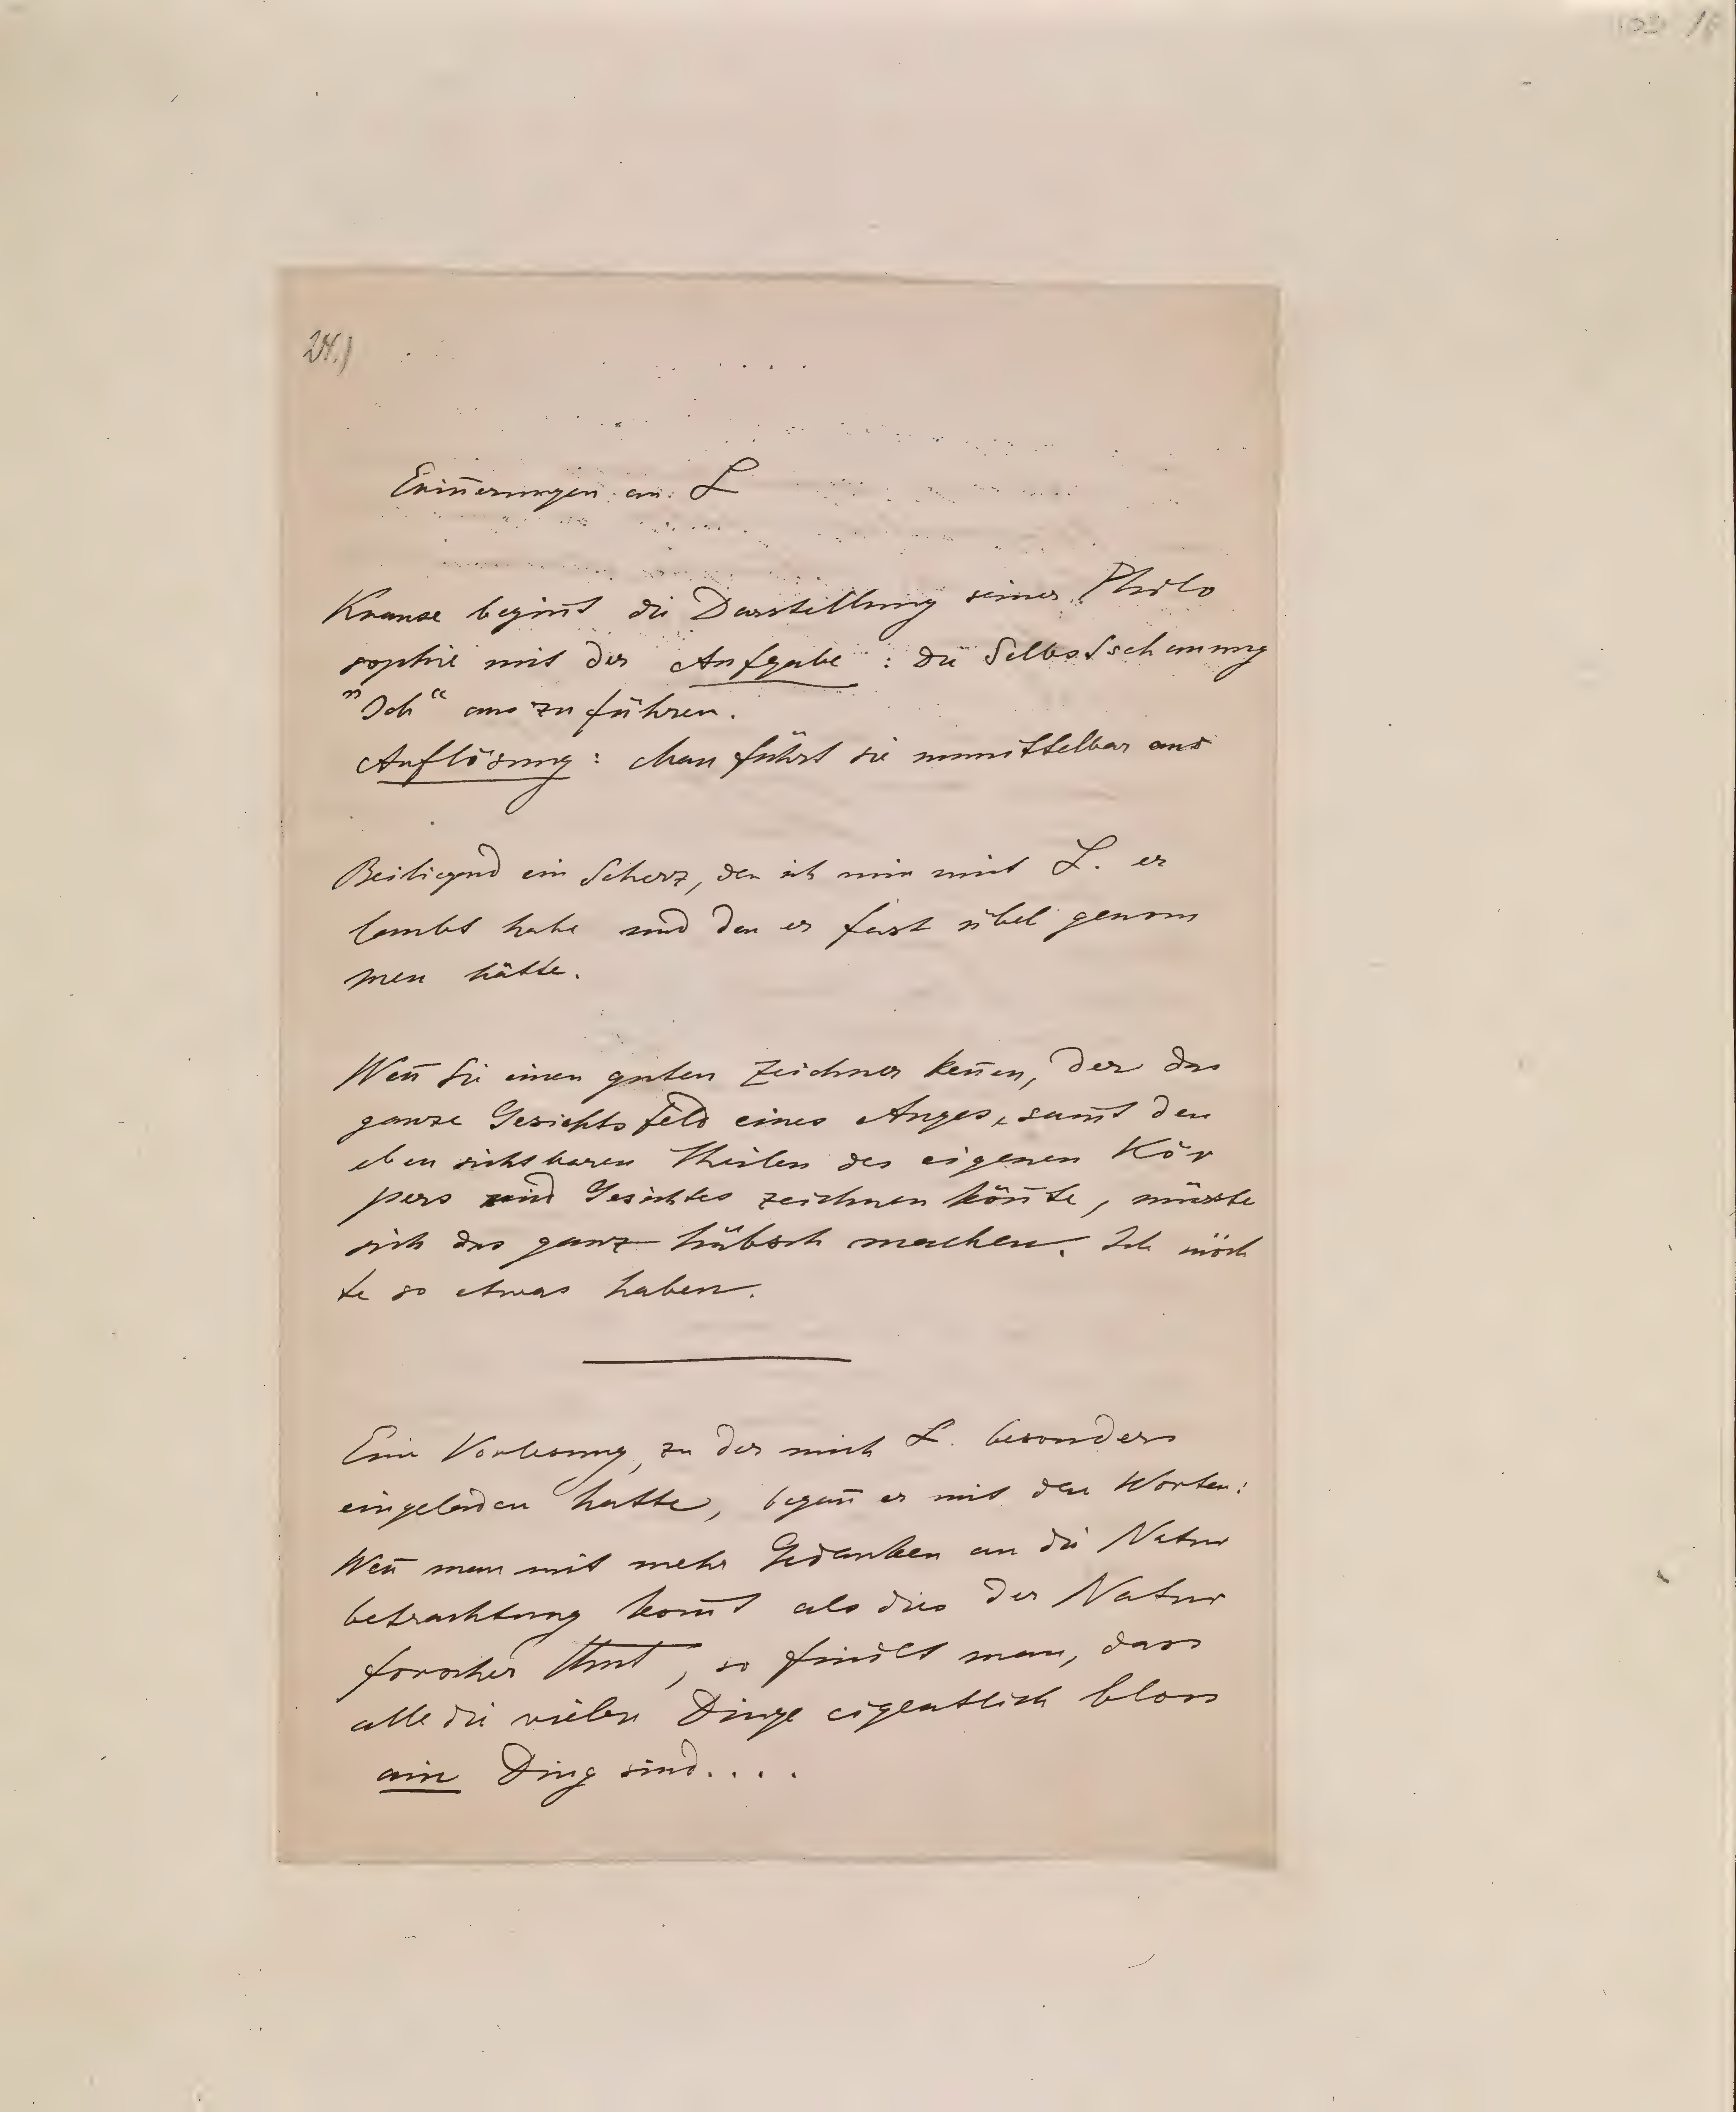 24.)
Erin̄erungen an L
Krause begin̄t die Darstellung seiner Philo
sophie mit der Aufgabe : die Selbstschauung
"Ich“ aus zu führen.
Auflösung : Man führt sie unmittelbar aus
Beiliegend ein Scherz, den ich mir mit L. er
laubt habe und den er fast übel genom
men hätte.
Wen̄ Sie einen guten Zeichner ken̄en, der das
ganze Gesichtsfeld eines Auges, sam̄t den
eben sichtbaren Theilen des eigenen Kör
pers und Gesichtes zeichnen kön̄te, müsste
sich das ganz hübsch machen. Ich möch
te so etwas haben.
Eine Vorlesung, zu der mich L. besonders
eingeladen hatte, began̄ er mit den Worten:
Wen̄ man mit mehr Gedanken an die Natur
betrachtung kom̄t als dies der Natur
forscher thut, so findet man, dass
alle die vielen Dinge eigentlich bloss
ein Ding sind....